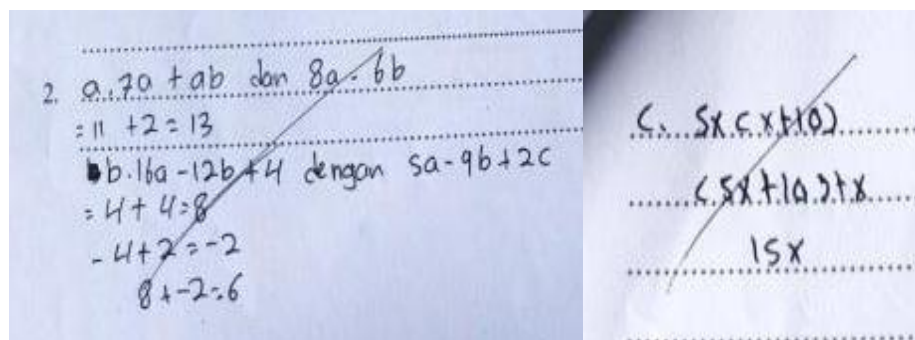 2. a. 7a + ab dan 8a - 6b
= 11 + 2 = 13
b. 16a - 12b + 4 dengan 5a - 9b + 2c
= 4 + 4 = 8
- 4 + 2 = -2
8 + -2 = 6
C. 5x (x + 10)
(5x + 10) + x
15x